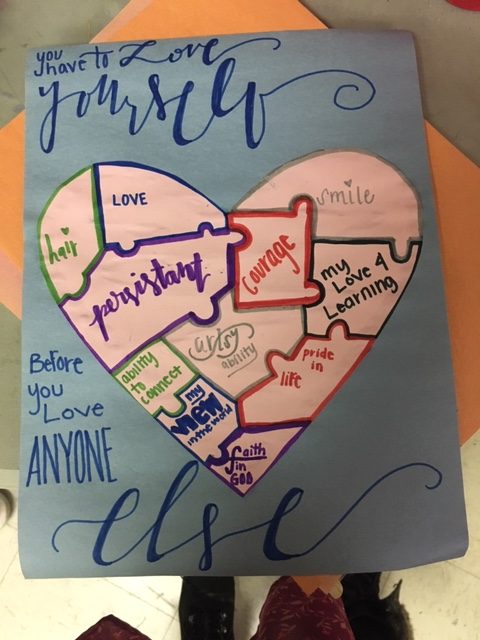 you
have to Love
yourself
hair
LOVE
smile
persistant
courage
my
Love 4
Learning
artsy
ability
pride
in
life
ability
to
connect
my
VIEW
in the world
faith
in
GOD
Before
you
Love
ANYONE
else